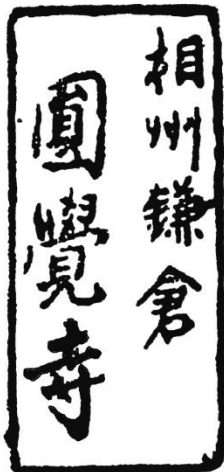 相州鎌倉
圓覺寺